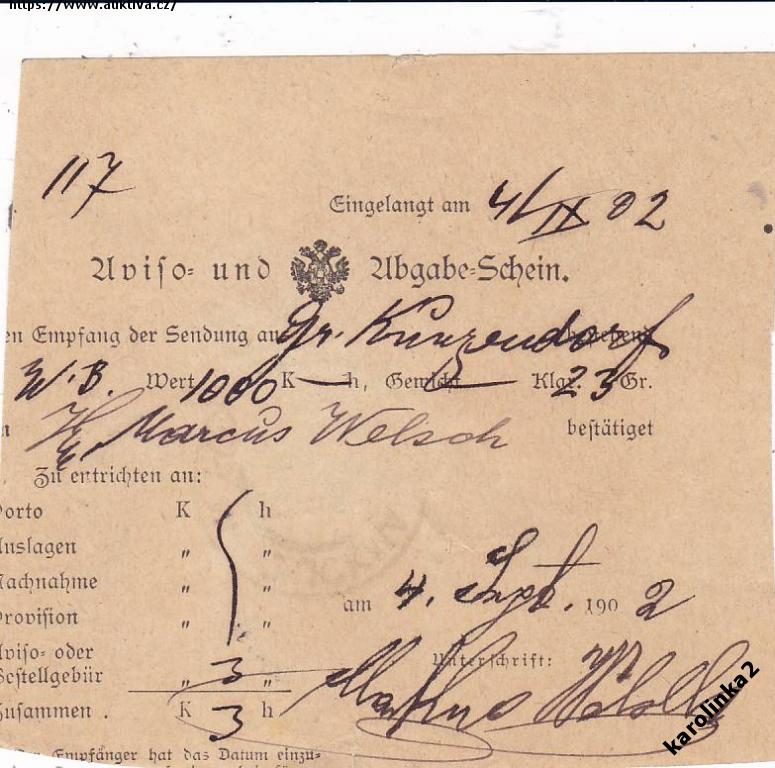 https://www.auktiva.cz/
117
Eingelangt am 4/IX 02
Aviso- und Abgabe-Schein.
en Empfang der Sendung aus Gr. Kunzendorf
W. B. Wert 1000 K — h, Gewicht — Klgr. 23 Gr.
Marcus Welsch bestätiget
Zu entrichten an:
Porto K h
Auslagen " "
Nachnahme " "
Provision " "
am 4. Sept. 1902
Aviso- oder
Bestellgebür " 3 "
Unterschrift:
Markus Welsch
Zusammen . K 3 h
Der Empfänger hat das Datum einzu-
karolinka2